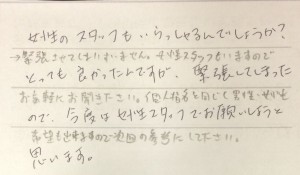 女性のスタッフもいらっしゃるんでしょうか?
→緊張させてしまいすいません。女性スタッフもいますので
とっても良かったんですが、緊張してしまった
お気軽にお聞きください。個人指名と同じく男性・女性も
ので、今度は女性スタッフでお願いしようと
希望も出来ますので次回の参考にして下さい。
思います。